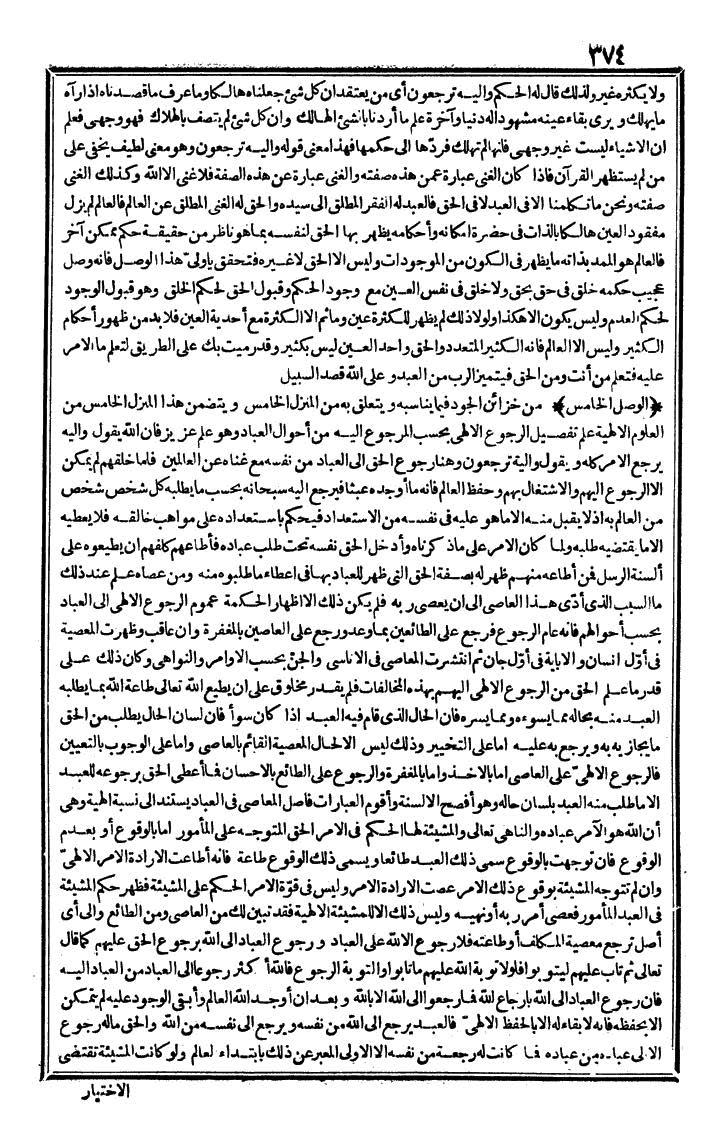 ٣٧٤
ولا يكثره غير ولذلك قال له الحكم واليه ترجعون أى من يعتقد ان كل شئ جعلناه هالكا وما عرف ما قصدناه اذا رآه
ما يهلك ويرى بقاء عينه مشهودا له دنيا وآخرة علم ما أردنا بالشئ الهالك وان كل شئ لم يتصف بالهلاك فهو وجهى فعلم
ان الاشياء ليست غير وجهى فانها لم تهلك فردّها الى حكمها فهذا معنى قوله واليه ترجعون وهو معنى لطيف يخفى على
من لم يستظهر القرآن فاذا كان الغنى عبارة عمن هذه صفته والغنى عبارة عن هذه الصفة فلا غنى الا الله وكذلك الغنى
صفته ونحن ما تكلمنا الا فى العبد لا فى الحق فالعبد له الفقر المطلق الى سيده والحق له الغنى المطلق عن العالم فالعالم لم يزل
مفقود العين هالكا بالذات فى حضرة امكانه وأحكامه يظهر بها الحق لنفسه بما هو ناظر من حقيقة حكم ممكن آخر
فالعالم هو الممد بذاته ما يظهر فى الكون من الموجودات وليس الا الحق لا غيره فتحقق ياولىّ هذا الوصل فانه وصل
عجيب حكمه خلق فى حق بحق ولا خلق فى نفس العين مع وجود الحكم وقبول الحق لحكم الخلق وهو قبول الوجود
لحكم العدم وليس يكون الا هكذا ولولا ذلك لم يظهر للكثرة عين وما ثم الا الكثرة مع أحدية العين فلا بد من ظهور أحكام
الكثير وليس الا العالم فانه الكثير المتعدد والحق واحد العين ليس بكثير وقد رميت بك على الطريق لتعلم ما الامر
عليه فتعلم من أنت ومن الحق فيتميز الرب من العبد وعلى الله قصد السبيل
﴿الوصل الخامس﴾ من خزائن الجود فيما يناسبه ويتعلق به من المنزل الخامس ويتضمن هذا المنزل الخامس من
العلوم الالهية علم تفصيل الرجوع الالهى بحسب المرجوع اليه من أحوال العباد وهو علم عزيز فان الله يقول واليه
يرجع الامر كله ويقول والية ترجعون وهنا رجوع الحق الى العباد من نفسه مع غناه عن العالمين فاما خلقهم لم يمكن
الا الرجوع اليهم والاشتغال بهم وحفظ العالم فانه ما أوجده عبثا فيرجع اليه سبحانه بحسب ما يطلبه كل شخص شخص
من العالم به اذ لا يقبل منه الا ما هو عليه فى نفسه من الاستعداد فيحكم باستعداده على مواهب خالقه فلا يعطيه
الا ما يقتضيه طلبه ولما كان الامر على ما ذكرناه وأدخل الحق نفسه تحت طلب عباده فأطاعهم كلفهم ان يطيعوه على
ألسنة الرسل فن أطاعه منهم ظهر له بصفة الحق التى ظهر للعباد بها فى اعطاء ما طلبوه منه ومن عصاه علم عند ذلك
ما السبب الذى أدّى هذا العاصى الى ان يعصى ربه فلم يكن ذلك الا اظهار الحكمة عموم الرجوع الالهى الى العباد
بحسب أحوالهم فانه عام الرجوع فرجع على الطائعين بما وعد ورجع على العاصين بالمغفرة وان عاقب وظهرت المعصية
فى أوّل انسان والاباية فى أوّل جان ثم انتشرت المعاصى فى الاناسى والجنّ بحسب الاوامر والنواهى وكان ذلك على
قدر ما علم الحق من الرجوع الالهى اليهم بهذه المخالفات فلم يقدر مخلوق على ان يطيع الله تعالى طاعة الله بما يطلبه
العبد منه بحاله مما يسوءه ومما يسره فان الحال الذى قام فيه العبد اذا كان سوأ فان لسان الحال يطلب من الحق
ما يجازيه به ويرجع به عليه اما على التخيير وذلك ليس الا لحال المعصية القائم بالعاصى واما على الوجوب بالتعيين
فالرجوع الالهىّ على العاصى اما بالاخذ واما بالمغفرة والرجوع على الطائع بالاحسان فما أعطى الحق برجوعه للعبد
الا ما طلب منه العبد بلسان حاله وهو أفصح الالسنة وأقوم العبارات فاصل المعاصى فى العباد يستند الى نسبة الهية وهى
أن الله هو الآمر عباده والناهى تعالى والمشيئة لها الحكم فى الامر الحق المتوجه على المأمور اما بالوقوع أو بعدم
الوقوع فان توجهت بالوقوع سمى ذلك العبد طائعا ويسمى ذلك الوقوع طاعة فانه أطاعت الارادة الامر الالهىّ
وان لم تتوجه المشيئة بوقوع ذلك الامر عصت الارادة الامر وليس فى قوّة الامر الحكم على المشيئة فظهر حكم المشيئة
فى العبد المأمور فعصى أمر ربه أو نهيه وليس ذلك الا للمشيئة الالهية فقد تبين لك من العاصى ومن الطائع والى أى
أصل ترجع معصية المكلف أو طاعته فلا رجوع الا لله على العباد ورجوع العباد الى الله برجوع الحق عليهم كما قال
تعالى ثم تاب عليهم ليتوبوا فلولا توبة الله عليهم ما تابوا والتوبة الرجوع فالله أكثر رجوعا الى العباد من العباد اليه
فان رجوع العباد الى الله بارجاع لله فما رجعوا الى الله الا بالله وبعد ان أوجد الله العالم وأبقى الوجود عليه لم يتمكن
الا بحفظه فانه لا بقاء له الا بالحفظ الالهىّ فالعبد يرجع الى الله من نفسه ويرجع الى نفسه من الله والحق ماله رجوع
الا الى عباده من عباده فما كانت له رجعة من نفسه الا الاولى المعبر عن ذلك بابتداء العالم ولو كانت المشيئة تقتضى
الاختيار